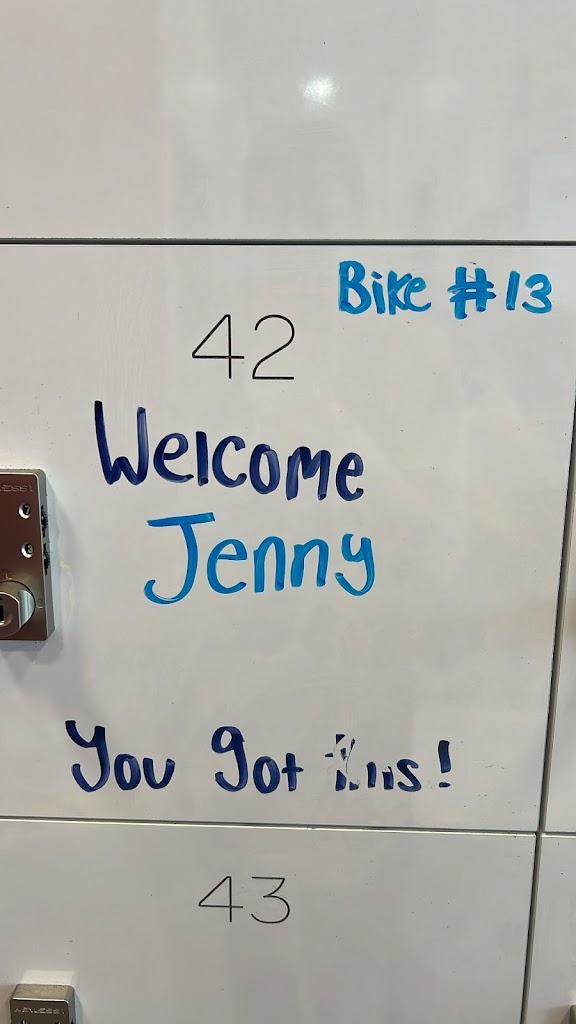 Bike #13
42
Welcome
Jenny
You got !
43